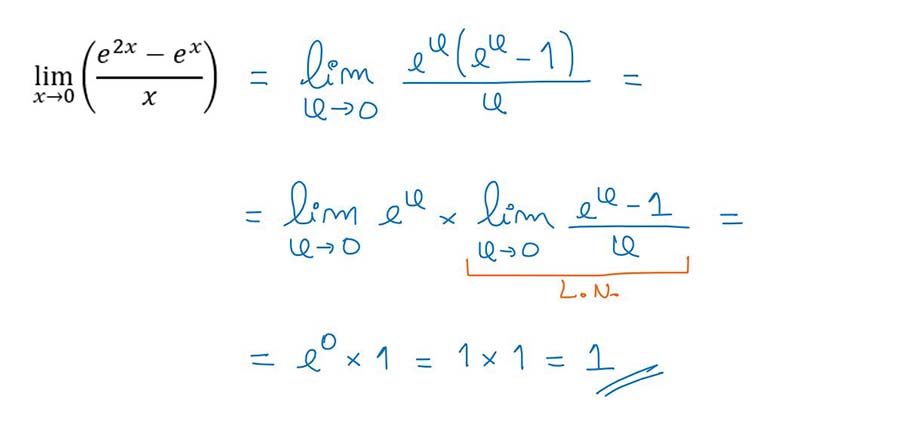 lim x→0 ((e^{2x} − e^x)/x) = lim x→0 (e^x(e^x − 1))/x =
= lim x→0 e^x × lim x→0 (e^x − 1)/x =
L.N.
= e^0 × 1 = 1 × 1 = 1